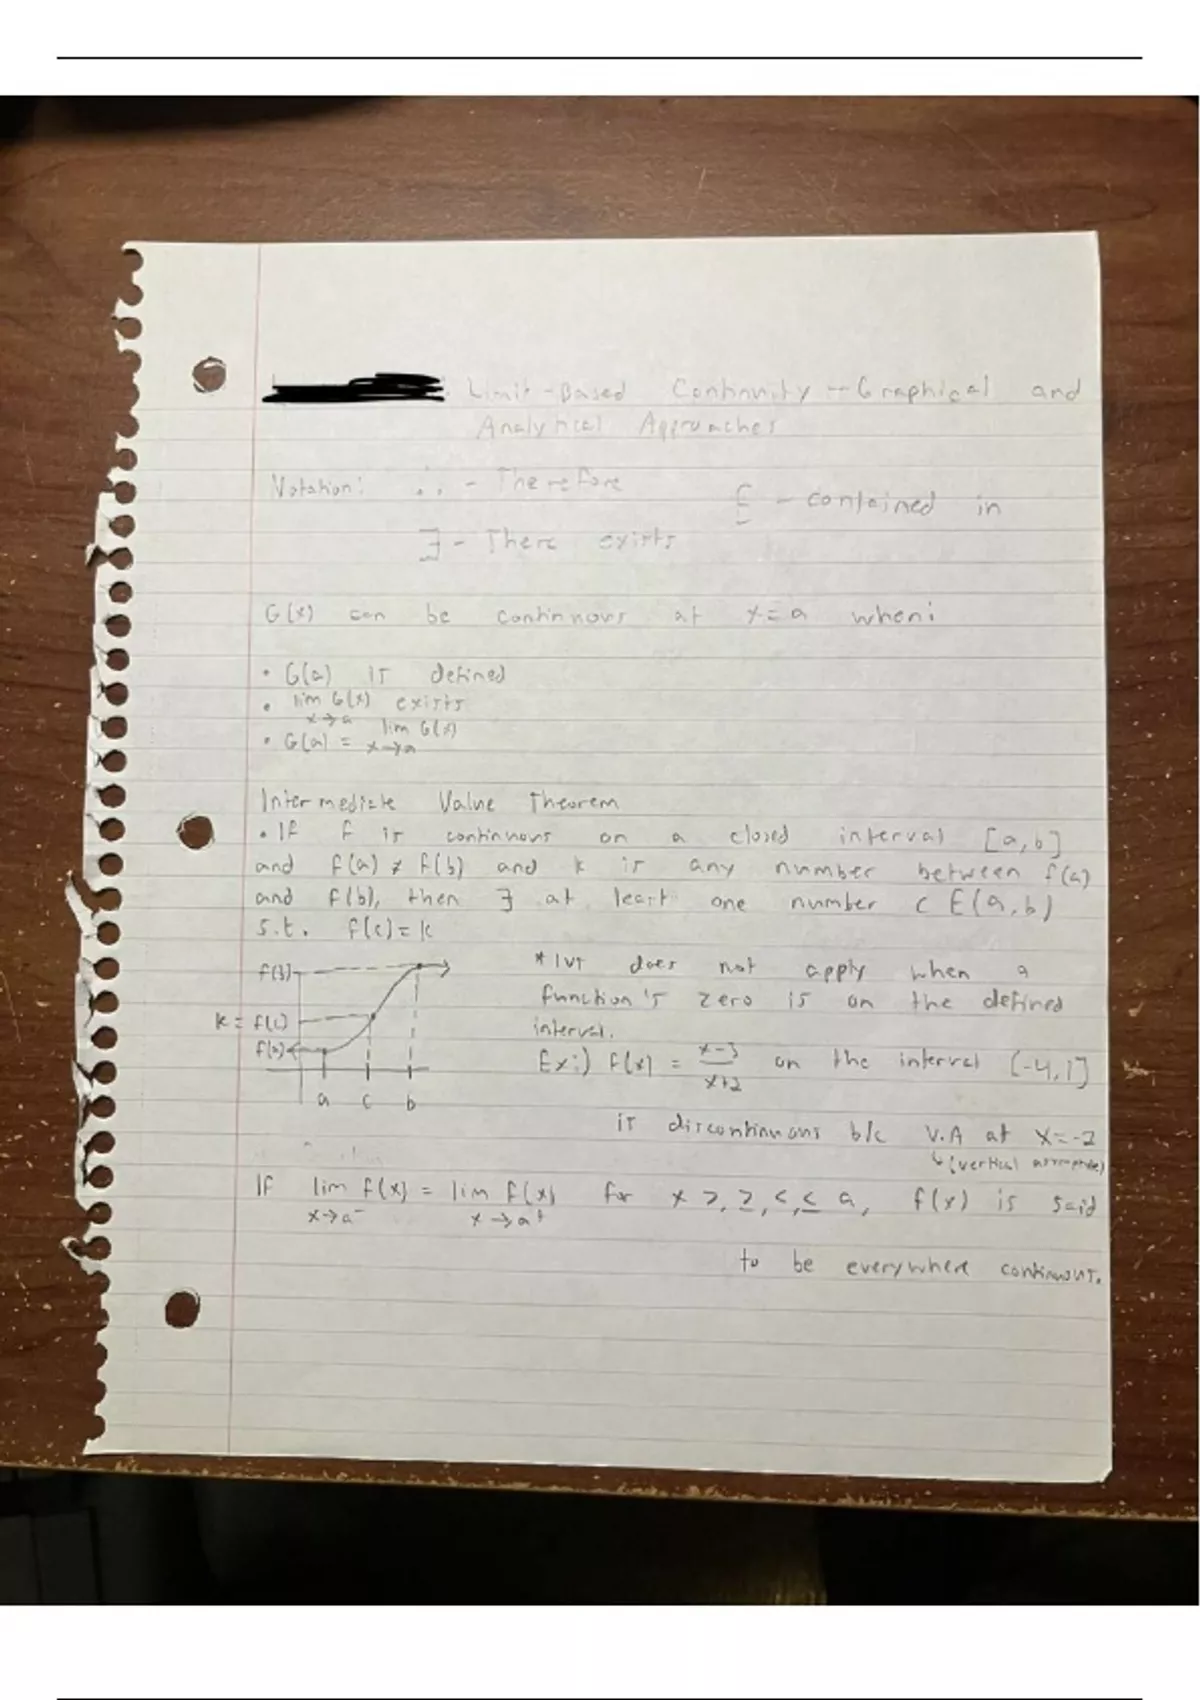 Limit-Based Continuity -- Graphical and
Analytical Approaches
Notation: ∴ - Therefore
∈ - contained in
∃ - There exists
G(x) can be continuous at x=a when:
• G(a) is defined
• lim G(x) exists
x→a
• G(a) = lim G(x)
x→a
Intermediate Value Theorem
• If f is continuous on a closed interval [a,b]
and f(a) ≠ f(b) and k is any number between f(a)
and f(b), then ∃ at least one number c ∈ (a,b)
s.t. f(c)=k
f(b)
k = f(c)
f(a)
a c b
* IVT does not apply when a
function's zero is on the defined
interval.
Ex:) f(x) = x-3 / x+2 on the interval [-4,1]
is discontinuous b/c V.A at x=-2
↳(vertical asymptote)
If lim f(x) = lim f(x) for x >, ≥, <, ≤ a, f(x) is said
x→a⁻ x→a⁺
to be everywhere continuous.